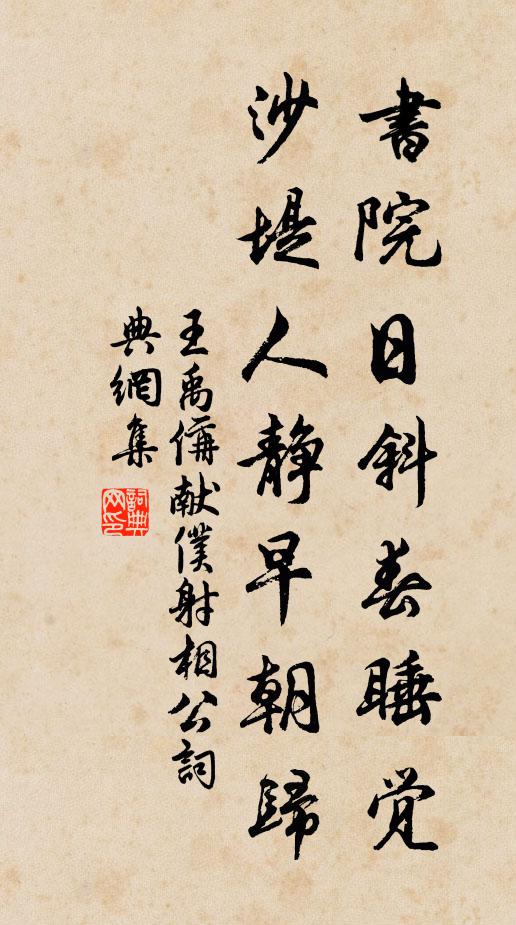 書院日斜春睡覚
沙堤人静早朝歸
王禹偁献僕射相公詞
典網集
詞典网印